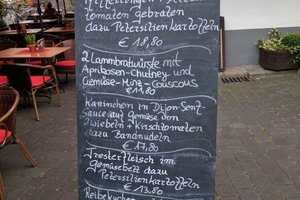 tomaten gebraten
dazu Petersilienkartoffeln
€ 18,80
2 Lammbratwürste mit
Aprikosen-Chutney und
Gemüse-Minz-Couscous
€ 11,80
Kaninchen in Dijon-Senf-
Sauce auf Gemüse von
Zwiebeln + Kirschtomaten
dazu Bandnudeln
€ 17,80
Tresterfleisch im
Gemüsebett dazu
Petersilienkartoffeln
€ 13,80
Reibekuchen